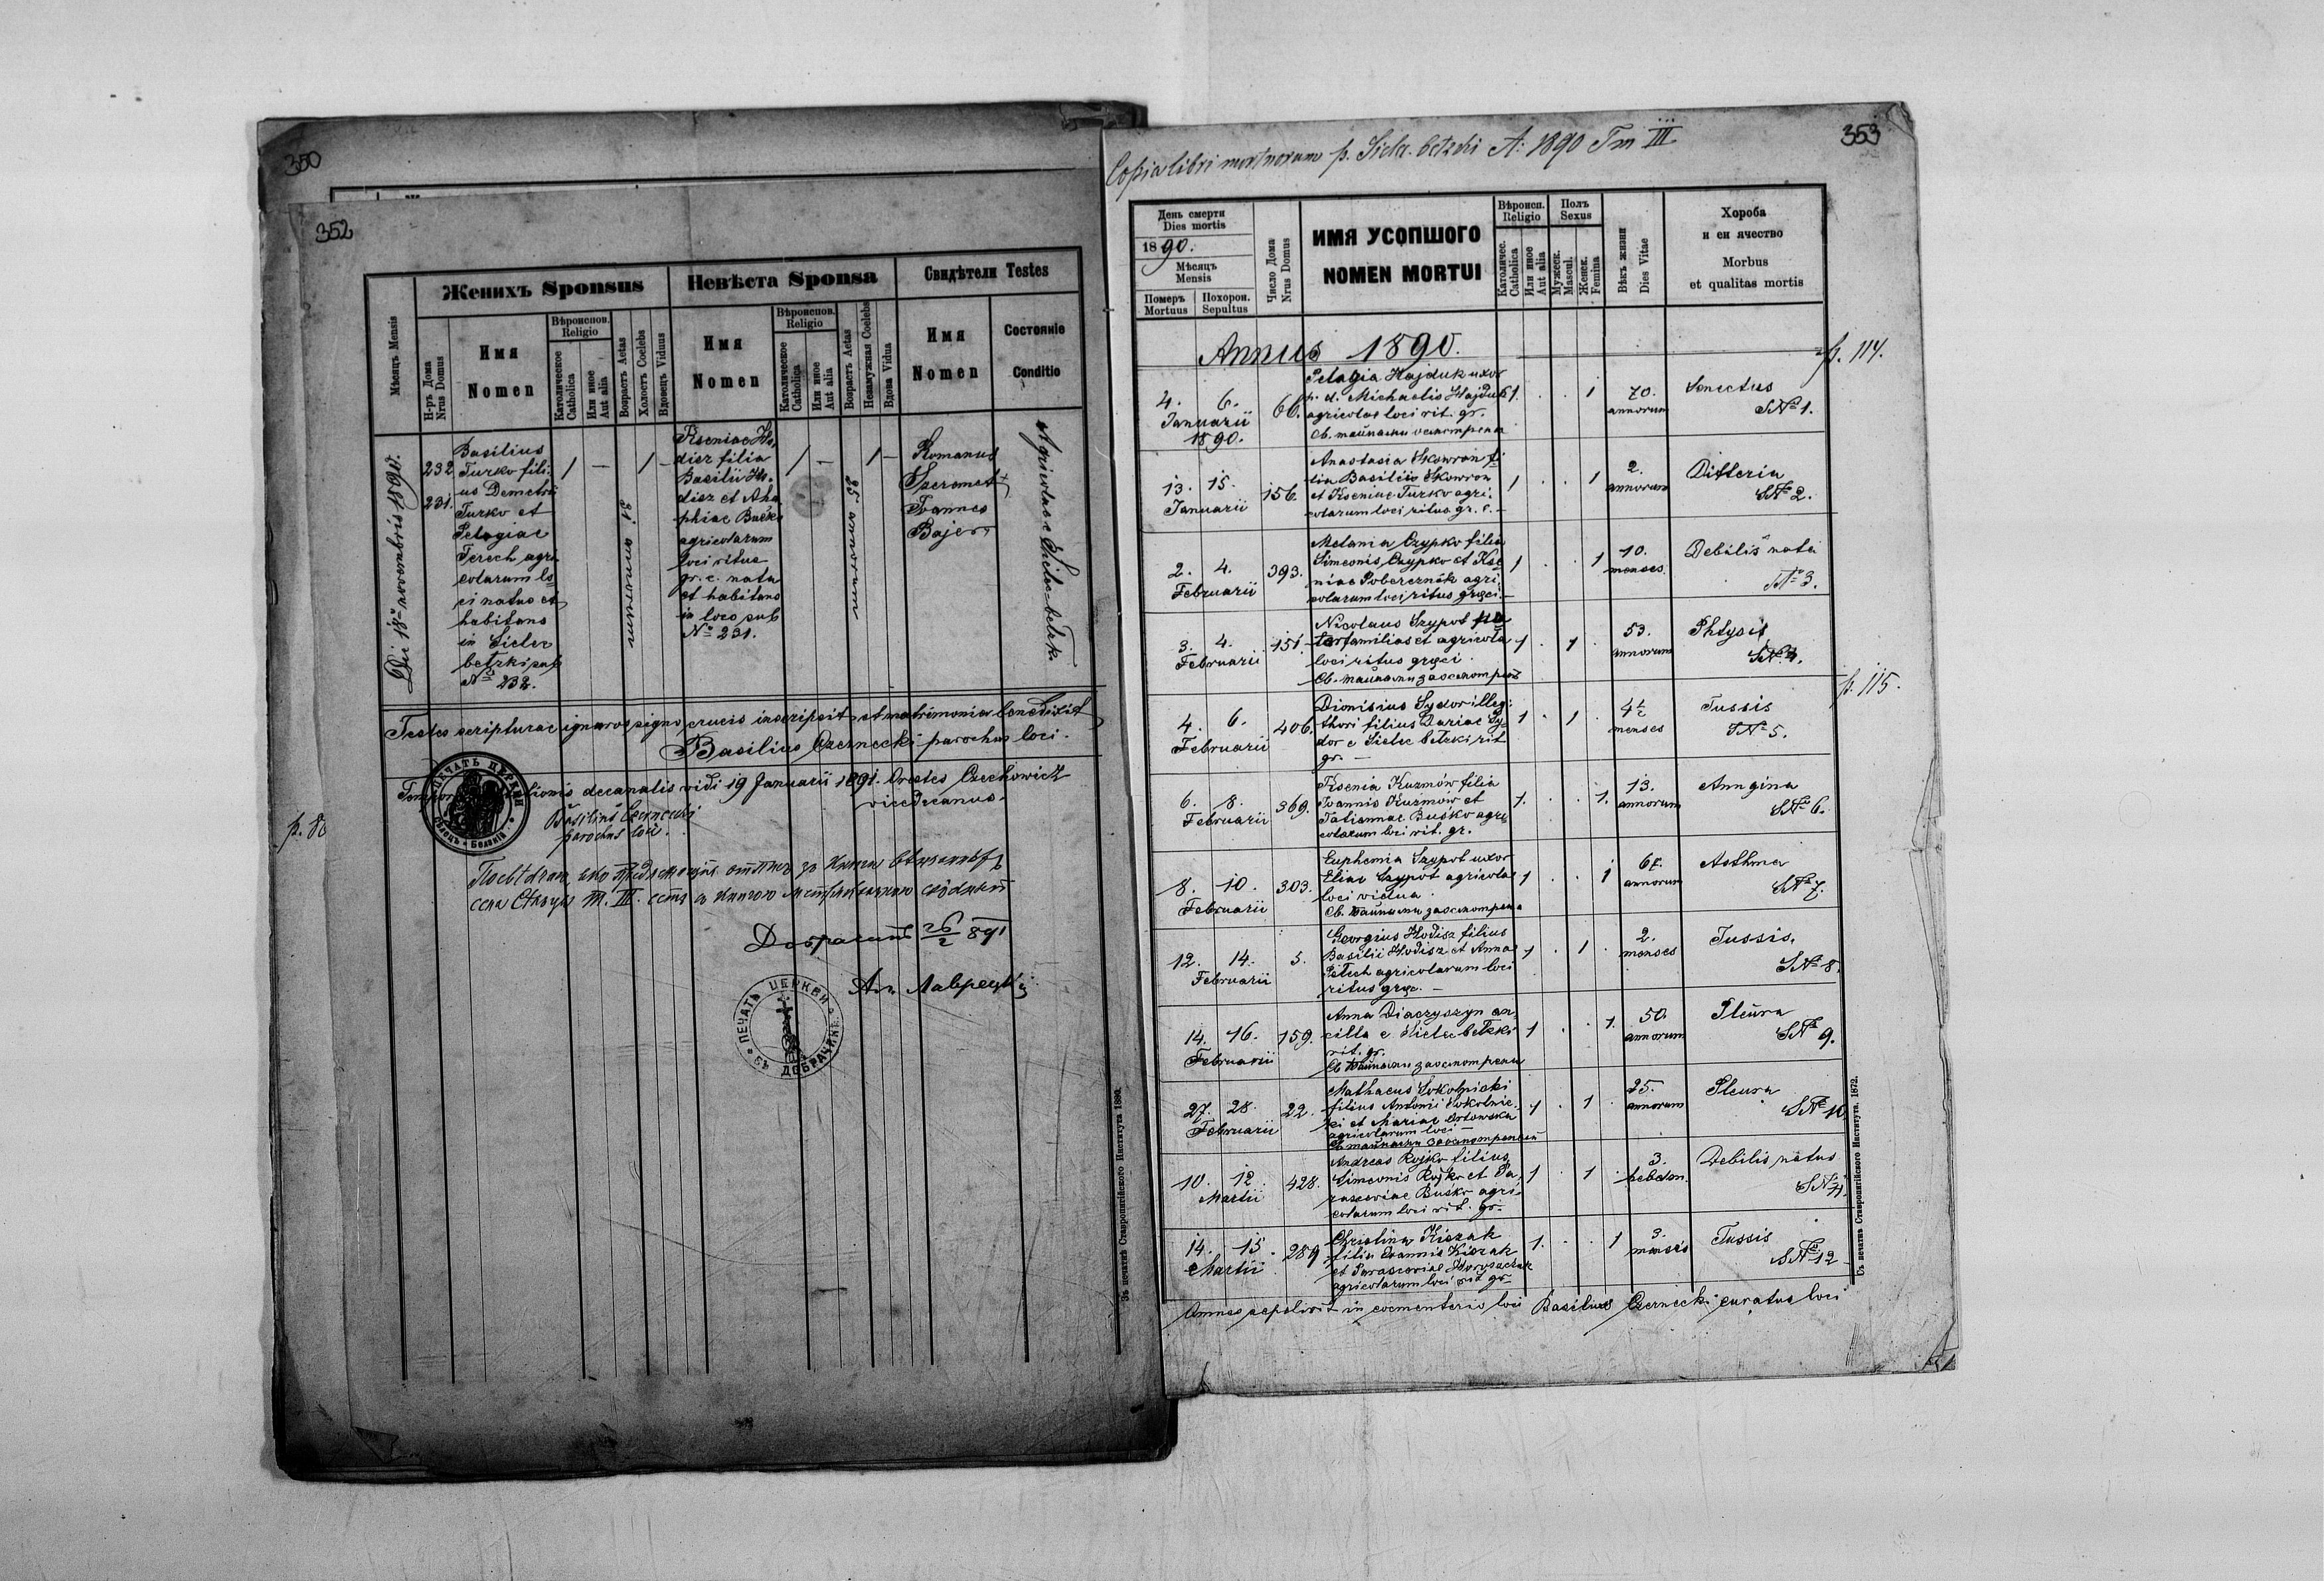 350
352
Женихъ Sponsus
Невѣста Sponsa
Свидѣтели Testes
Мѣсяцъ Mensis
Н-ръ Дома
Nrus Domus
Имя
Nomen
Вѣроиспов.
Religio
Католическое
Catholica
Или иное
Aut alia
Возрастъ Aetas
Холостъ Coelebs
Вдовець Viduus
Имя
Nomen
Вѣроиспов.
Religio
Католическое
Catholica
Или иное
Aut alia
Возрастъ Aetas
Незамужная Coelebs
Вдова Vidua
Имя
Nomen
Состояніе
Conditio
Die 18a novembris 1890.
232
231.
Basilius
Turko fili-
us Demetrii
Turko et
Pelagiae
Terech agri
colarum lo
ci natus et
habitans
in Sielec
betzki sub
No 232.
1
—
31 annorum
1
—
Kseniae Ho
disz filia
Basilii Ho-
disz et Aha
phiae Busko
agricolarum
loci ritus
gr. c. nata
et habitans
in loco sub
No 231.
1
—
annorum
1
—
Romanus
Szeremet
Joannes
Bajer
Agricolae Sielec betzk.
Testes scripturae ignaros signo crucis inscripsit et matrimonia benedixit
Basilius Czernecki parochus loci.
decanalis vidi 19 Januarii 1891. Orestes Czechowicz
vicedecanus.
Basilius Czernecki
parochus loci.
p. 80
ПЕЧАТЬ ЦЕРКВИ
26/2 891
Лаврецкій
ПЕЧАТЬ ЦЕРКВИ
ДОБРАЧИНѢ
Зъ печатнѣ Ставропигійского Института 1880.
Copia libri mortuorum p. Siela. betzki A: 1890 Tm III
353
День смерти
Dies mortis
1890.
Мѣсяцъ
Mensis
Померъ
Mortuus
Похорон.
Sepultus
Число Дома
Nrus Domus
ИМЯ УСОПШОГО
NOMEN MORTUI
Вѣроисп.
Religio
Католичес.
Catholica
Или иное
Aut alia
Полъ
Sexus
Мужеск.
Mascul.
Женск.
Femina
Вѣкъ жизни
Dies Vitae
Хороба
и еи ячество
Morbus
et qualitas mortis
Annus 1890.
p. 114.
4. 6.
Januarii
1890.
66.
Pelagia Hajduk uxor
Michaelis Hajduk
agricolae loci rit. gr.
1 . . 1
70.
annorum
Senectus
SNo 1.
13. 15.
Januarii
156.
Anastasia Skowron fi
lia Basilii Skowron
et Kseniae Turko agri-
colarum loci ritus gr. c. —
1 . . 1
2.
annorum
Difteria
SNo 2.
2. 4.
Februarii
393.
Melania Czypko filia
Simeonis Czypko et Kse
niae Pobereznik agri-
colarum loci ritus graeci. —
1 . . 1
10.
menses.
Debilis nata
No 3.
3. 4.
Februarii
151.
Nicolaus Szypot pa
terfamilias et agricola
loci ritus graeci.
1 . 1 .
53.
annorum
Phtysis
SNo 4.
p. 115.
4. 6.
Februarii
406.
Dionisius Sydor illegi
thori filius Dariae Sy
dor e Sielec betzki rit
gr. —
1 . 1 .
4½
menses
Tussis
SNo 5.
6. 8.
Februarii
369.
Ksenia Kuzmów filia
Joannis Kuzmów et
Tatiannae Busko agri
colarum loci rit. gr.
1. . . 1.
13.
annorum
Anngina
SNo 6.
8. 10.
Februarii
303.
Euphemia Szypot uxor
Eliae Szypot agricolae
loci vidua.
1 . . 1
67.
annorum
Asthma
SNo 7.
12. 14.
Februarii
5.
Georgius Hodisz filius
Basilii Hodisz et Annae
Petech agricolarum loci
ritus graec. —
1 . 1 .
2.
menses
Tussis.
SNo 8.
14. 16.
Februarii
159.
Anna Diaczyszyn an
cilla e Sielec betzki
rit. gr.
1 . . 1.
50.
annorum
Pleura
SNo 9.
27. 28.
Februarii
22.
Mathaeus Sokolnicki
filius Antonii Sokolnic-
ki et Mariae Orlowska
agricolarum loci —
1 . 1 .
25.
annorum
Pleura
SNo 10.
10. 12.
Martii
428.
Andreas Rojko filius
Simeonis Rojko et Pa
rasceviae Busko agri-
colarum loci rit. gr.
1 . 1 .
3.
hebdom.
Debilis natus
SNo 11.
14. 15.
Martii
289
Christina Kiszak
filia Joannis Kiszak
et Parasceviae
agricolarum loci rit gr. —
1. . . 1
3.
menses
Tussis
SNo 12
Omnes sepelivit in coementerio loci Basilius Czernecki curatus loci
Съ печатнѣ Ставропигійского Института. 1872.